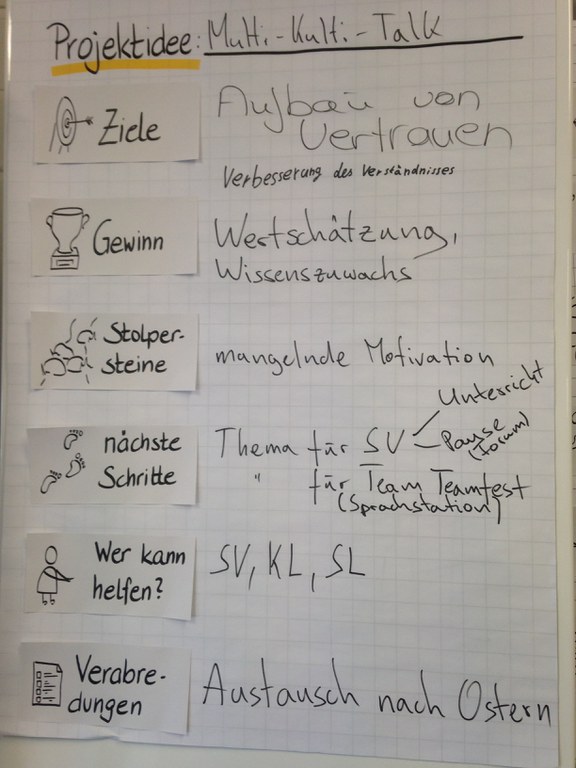 Projektidee: Multi-Kulti-Talk
Ziele
Aufbau von
Vertrauen
Verbesserung des Verständnisses
Gewinn
Wertschätzung,
Wissenszuwachs
Stolper-
steine
mangelnde Motivation
nächste
Schritte
Thema für SV
Unterricht
Pause
(Forum)
" für Team Teamtest
(Sprachstation)
Wer kann
helfen?
SV, KL, SL
Verabre-
dungen
Austausch nach Ostern